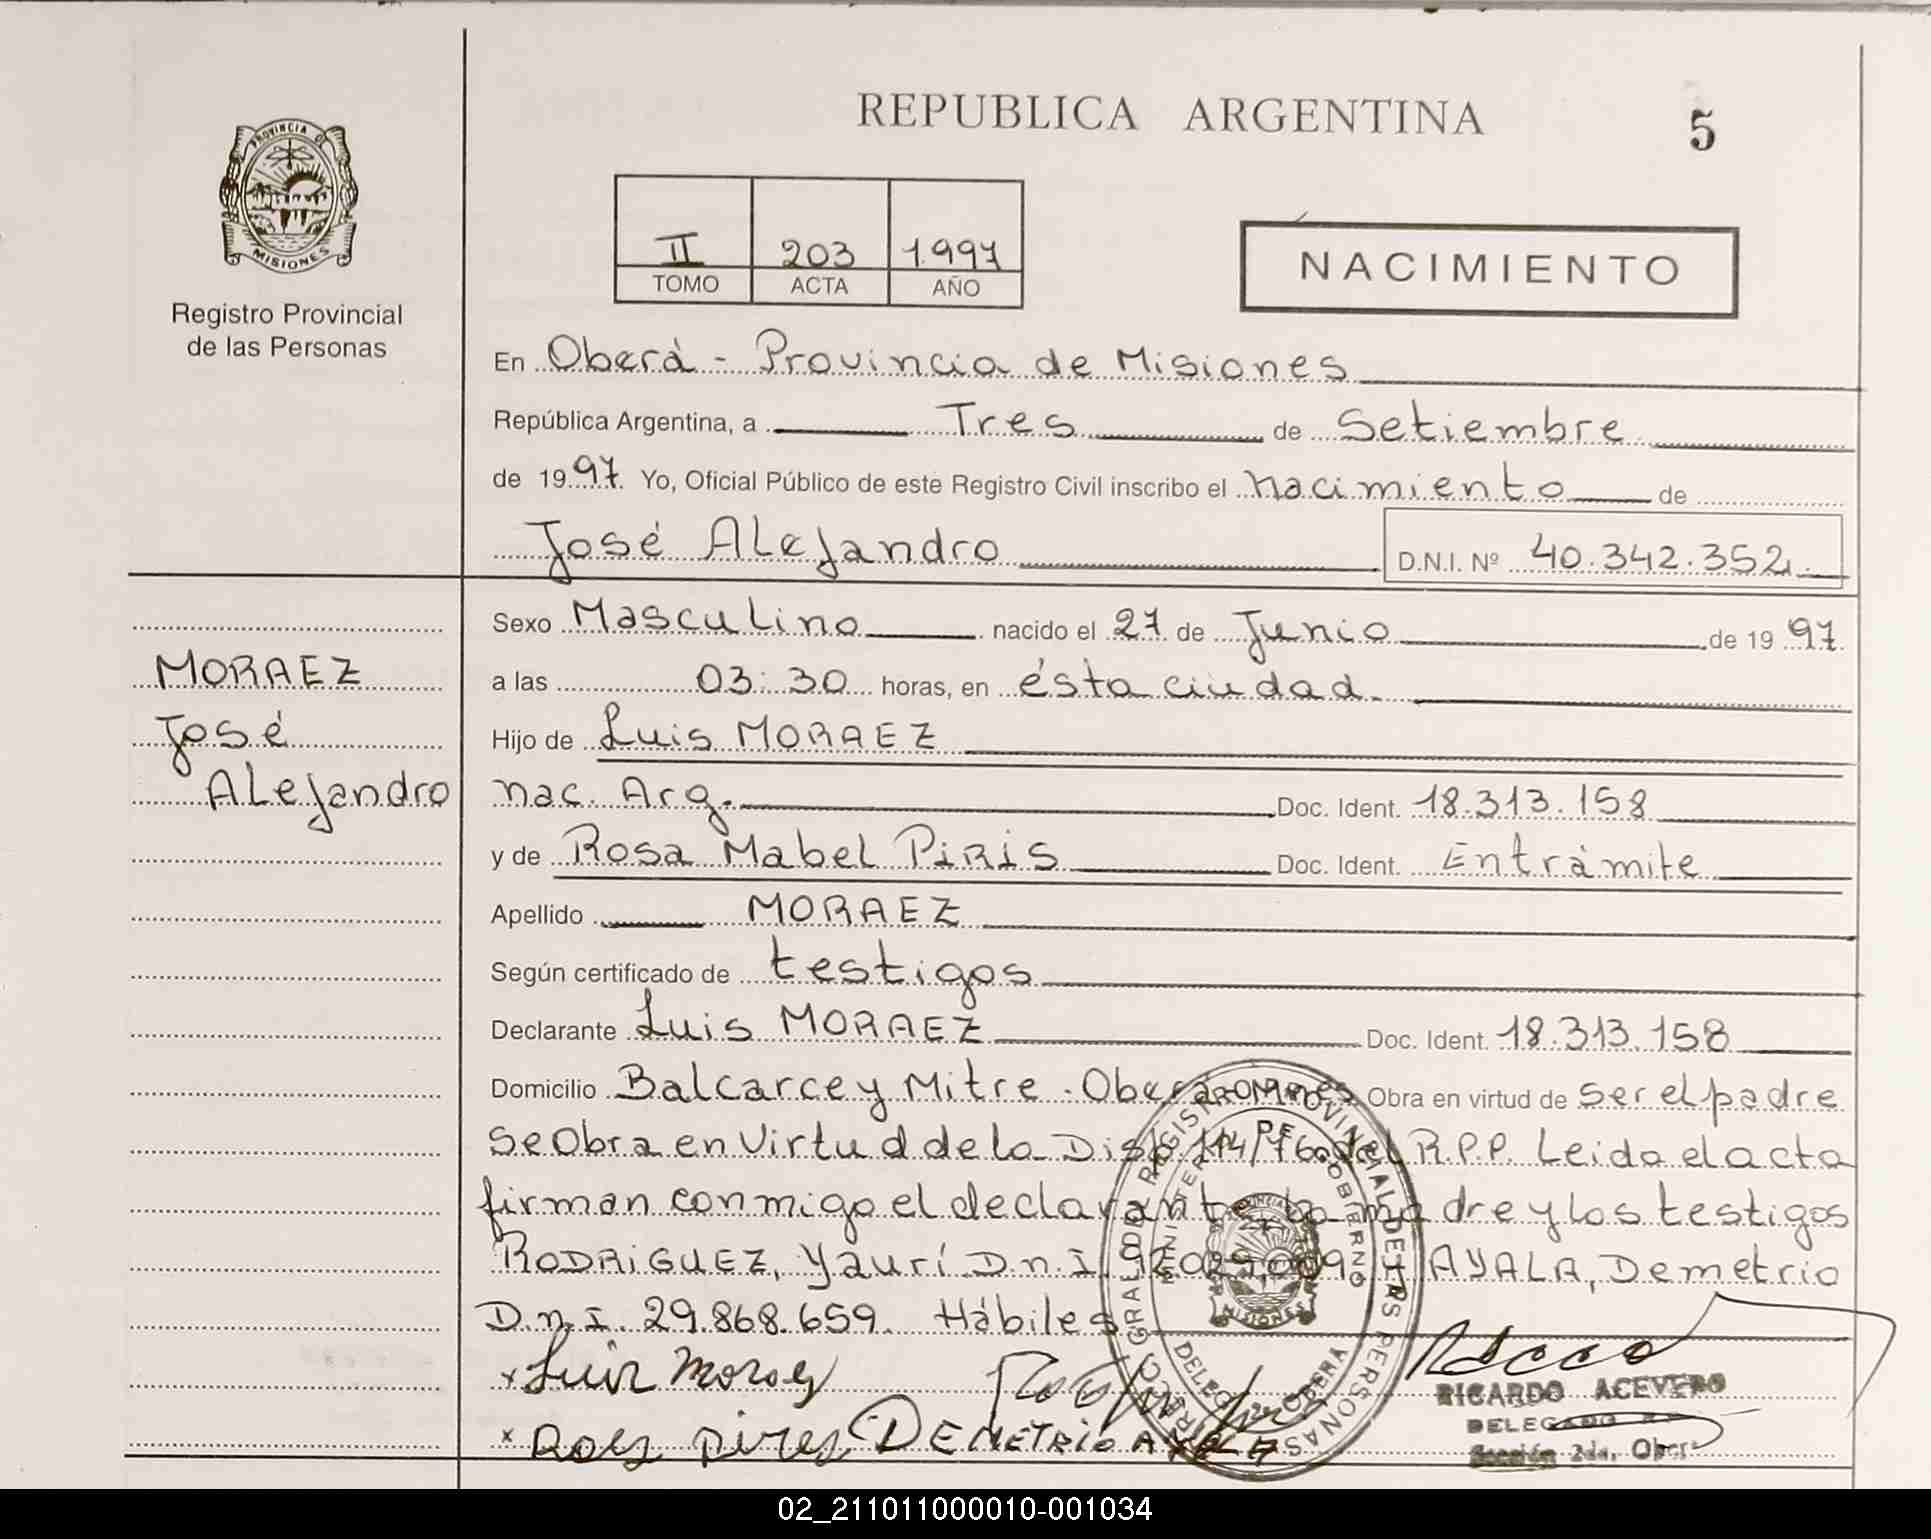 REPUBLICA ARGENTINA
5
PROVINCIA DE
MISIONES
Registro Provincial
de las Personas
II 203 1.997
TOMO ACTA AÑO
NACIMIENTO
En Oberá - Provincia de Misiones
República Argentina, a Tres de Setiembre
de 1997. Yo, Oficial Público de este Registro Civil inscribo el nacimiento de
José Alejandro
D.N.I. Nº 40.342.352.
MORAEZ
José
Alejandro
Sexo Masculino nacido el 27 de Junio de 1997
a las 03:30 horas, en ésta ciudad.
Hijo de Luis MORAEZ
nac. Arg. Doc. Ident. 18.313.158
y de Rosa Mabel PIRIS Doc. Ident. Entrámite
Apellido MORAEZ
Según certificado de testigos
Declarante Luis MORAEZ Doc. Ident. 18.313.158
Domicilio Balcarce y Mitre - Oberá - Mnes Obra en virtud de ser el padre
Se Obra en Virtud de la Disp. 114/76 del R.P.P. Leida el acta
firman conmigo el declarante, la madre y los testigos
RODRIGUEZ, Yaurí D.n.I. y AYALA, Demetrio
D.n.I. 29.868.659. Hábiles
x Luis Moraez
x Rosa Pires DEMETRIO AYALA
RICARDO ACEVERO
DELEGADO
Sección 2da. Oberá
DIREC. GRAL. DEL REGISTRO PROVINCIAL DE LAS PERSONAS
MINISTERIO DE GOBIERNO
OBERÁ
MISIONES
02_211011000010-001034